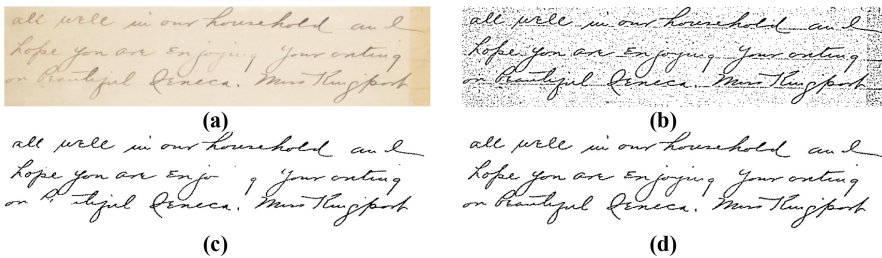 all well in our household and
hope you are enjoying your outing
on Beautiful Seneca. Miss Kingport
(a)
all well in our household and
hope you are enjoying your outing
on Beautiful Seneca. Miss Kingport
(b)
all well in our household and
hope you are enjo g your outing
on tiful Seneca. Miss Kingport
(c)
all well in our household and
hope you are enjoying your outing
on Beautiful Seneca. Miss Kingport
(d)